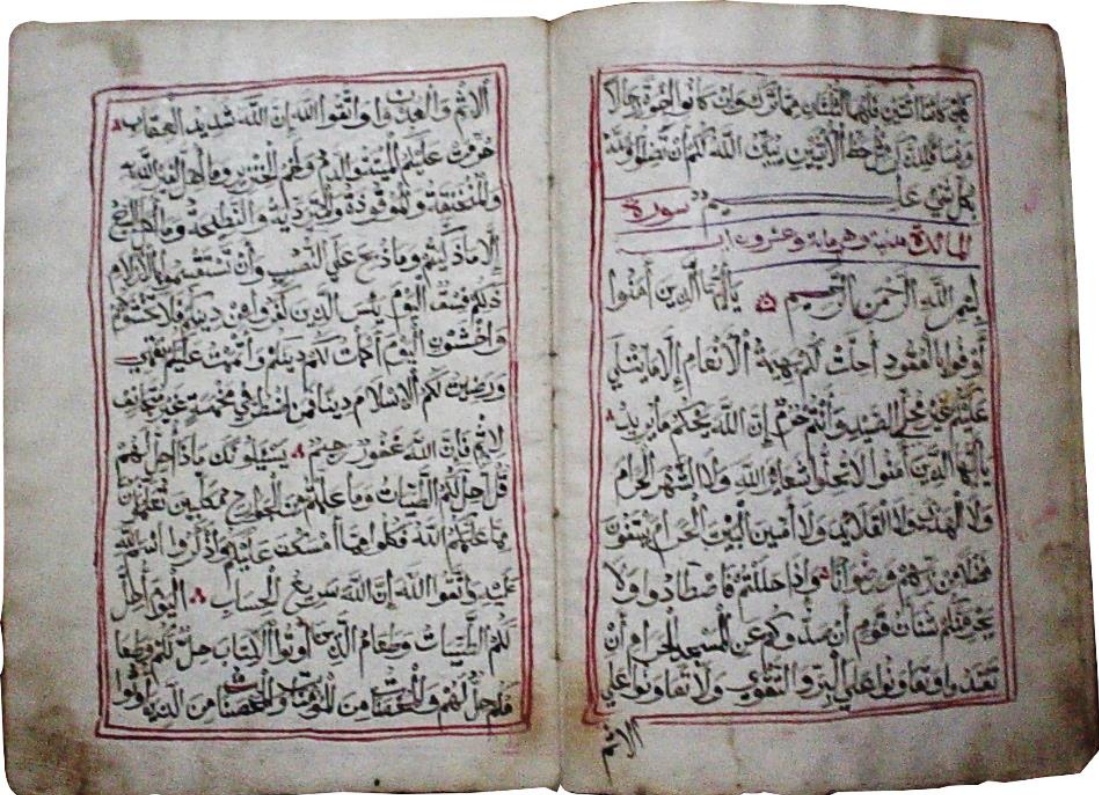 فإن كانتا اثنتين فلهما الثلثان مما ترك وإن كانوا إخوة رجالا
ونساء فللذكر مثل حظ الأنثيين يبين الله لكم أن تضلوا والله
بكل شيء عليم سورة
المائدة مدنية وهي مائة وعشرون آية
بِسْمِ اللَّهِ الرَّحْمَٰنِ الرَّحِيمِ يَا أَيُّهَا الَّذِينَ آمَنُوا
أَوْفُوا بِالْعُقُودِ أُحِلَّتْ لَكُمْ بَهِيمَةُ الْأَنْعَامِ إِلَّا مَا يُتْلَى
عَلَيْكُمْ غَيْرَ مُحِلِّي الصَّيْدِ وَأَنْتُمْ حُرُمٌ إِنَّ اللَّهَ يَحْكُمُ مَا يُرِيدُ
يَا أَيُّهَا الَّذِينَ آمَنُوا لَا تُحِلُّوا شَعَائِرَ اللَّهِ وَلَا الشَّهْرَ الْحَرَامَ
وَلَا الْهَدْيَ وَلَا الْقَلَائِدَ وَلَا آمِّينَ الْبَيْتَ الْحَرَامَ يَبْتَغُونَ
فَضْلًا مِنْ رَبِّهِمْ وَرِضْوَانًا وَإِذَا حَلَلْتُمْ فَاصْطَادُوا وَلَا
يَجْرِمَنَّكُمْ شَنَآنُ قَوْمٍ أَنْ صَدُّوكُمْ عَنِ الْمَسْجِدِ الْحَرَامِ أَنْ
تَعْتَدُوا وَتَعَاوَنُوا عَلَى الْبِرِّ وَالتَّقْوَى وَلَا تَعَاوَنُوا عَلَى
الاثم
الْإِثْمِ وَالْعُدْوَانِ وَاتَّقُوا اللَّهَ إِنَّ اللَّهَ شَدِيدُ الْعِقَابِ
حُرِّمَتْ عَلَيْكُمُ الْمَيْتَةُ وَالدَّمُ وَلَحْمُ الْخِنْزِيرِ وَمَا أُهِلَّ لِغَيْرِ اللَّهِ بِهِ
وَالْمُنْخَنِقَةُ وَالْمَوْقُوذَةُ وَالْمُتَرَدِّيَةُ وَالنَّطِيحَةُ وَمَا أَكَلَ السَّبُعُ
إِلَّا مَا ذَكَّيْتُمْ وَمَا ذُبِحَ عَلَى النُّصُبِ وَأَنْ تَسْتَقْسِمُوا بِالْأَزْلَامِ
ذَلِكُمْ فِسْقٌ الْيَوْمَ يَئِسَ الَّذِينَ كَفَرُوا مِنْ دِينِكُمْ فَلَا تَخْشَوْهُمْ
وَاخْشَوْنِ الْيَوْمَ أَكْمَلْتُ لَكُمْ دِينَكُمْ وَأَتْمَمْتُ عَلَيْكُمْ نِعْمَتِي
وَرَضِيتُ لَكُمُ الْإِسْلَامَ دِينًا فَمَنِ اضْطُرَّ فِي مَخْمَصَةٍ غَيْرَ مُتَجَانِفٍ
لِإِثْمٍ فَإِنَّ اللَّهَ غَفُورٌ رَحِيمٌ يَسْأَلُونَكَ مَاذَا أُحِلَّ لَهُمْ
قُلْ أُحِلَّ لَكُمُ الطَّيِّبَاتُ وَمَا عَلَّمْتُمْ مِنَ الْجَوَارِحِ مُكَلِّبِينَ تُعَلِّمُونَهُنَّ
مِمَّا عَلَّمَكُمُ اللَّهُ فَكُلُوا مِمَّا أَمْسَكْنَ عَلَيْكُمْ وَاذْكُرُوا اسْمَ اللَّهِ
عَلَيْهِ وَاتَّقُوا اللَّهَ إِنَّ اللَّهَ سَرِيعُ الْحِسَابِ الْيَوْمَ أُحِلَّ
لَكُمُ الطَّيِّبَاتُ وَطَعَامُ الَّذِينَ أُوتُوا الْكِتَابَ حِلٌّ لَكُمْ وَطَعَا
مُكُمْ حِلٌّ لَهُمْ وَالْمُحْصَنَاتُ مِنَ الْمُؤْمِنَاتِ وَالْمُحْصَنَاتُ مِنَ الَّذِينَ أُوتُوا